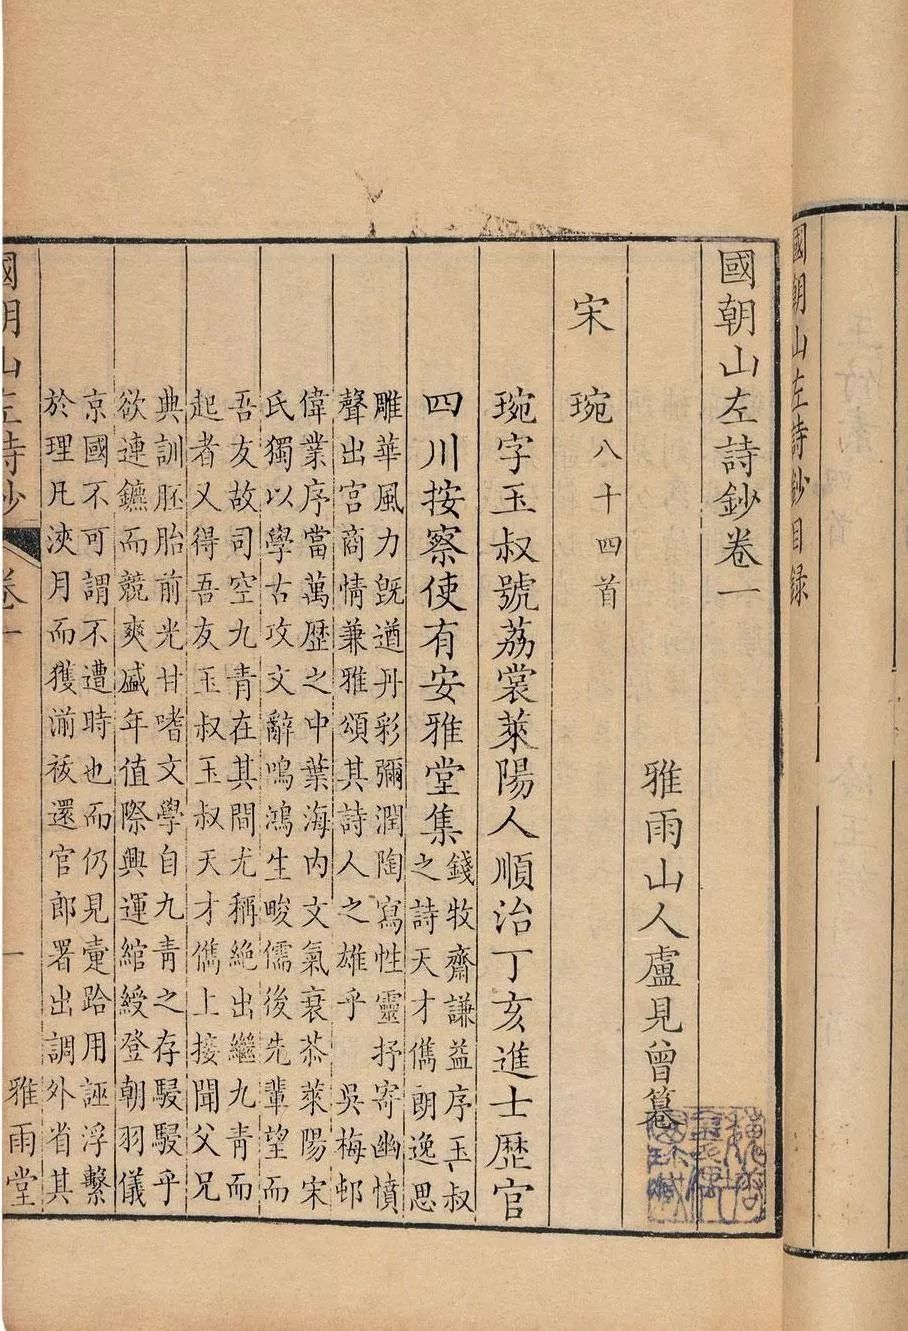 國朝山左詩鈔目録
國朝山左詩鈔卷一
雅雨山人盧見曾纂
宋琬八十四首
琬字玉叔號荔裳萊陽人順治丁亥進士歷官
四川按察使有安雅堂集錢牧齋謙益序玉叔
之詩天才儁朗逸思
雕華風力旣遒丹彩彌潤陶寫性靈抒寄幽憤
聲出宮商情兼雅頌其詩人之雄乎 吳梅邨
偉業序當萬歷之中葉海内文氣衰苶萊陽宋
氏獨以學古攻文辭鳴鴻生畯儒後先輩望而
吾友故司空九青在其間尤稱絶出繼九青而
起者又得吾友玉叔玉叔天才儁上接聞父兄
典訓胚胎前光甘嗜文學自九青之存駸駸乎
欲連鑣而競爽盛年值際興運綰綬登朝羽儀
京國不可謂不遭時也而仍見疐跲用誣浮繫
於理凡浹月而獲湔祓還官郎署出調外省其
國朝山左詩鈔 卷一 一 雅雨堂